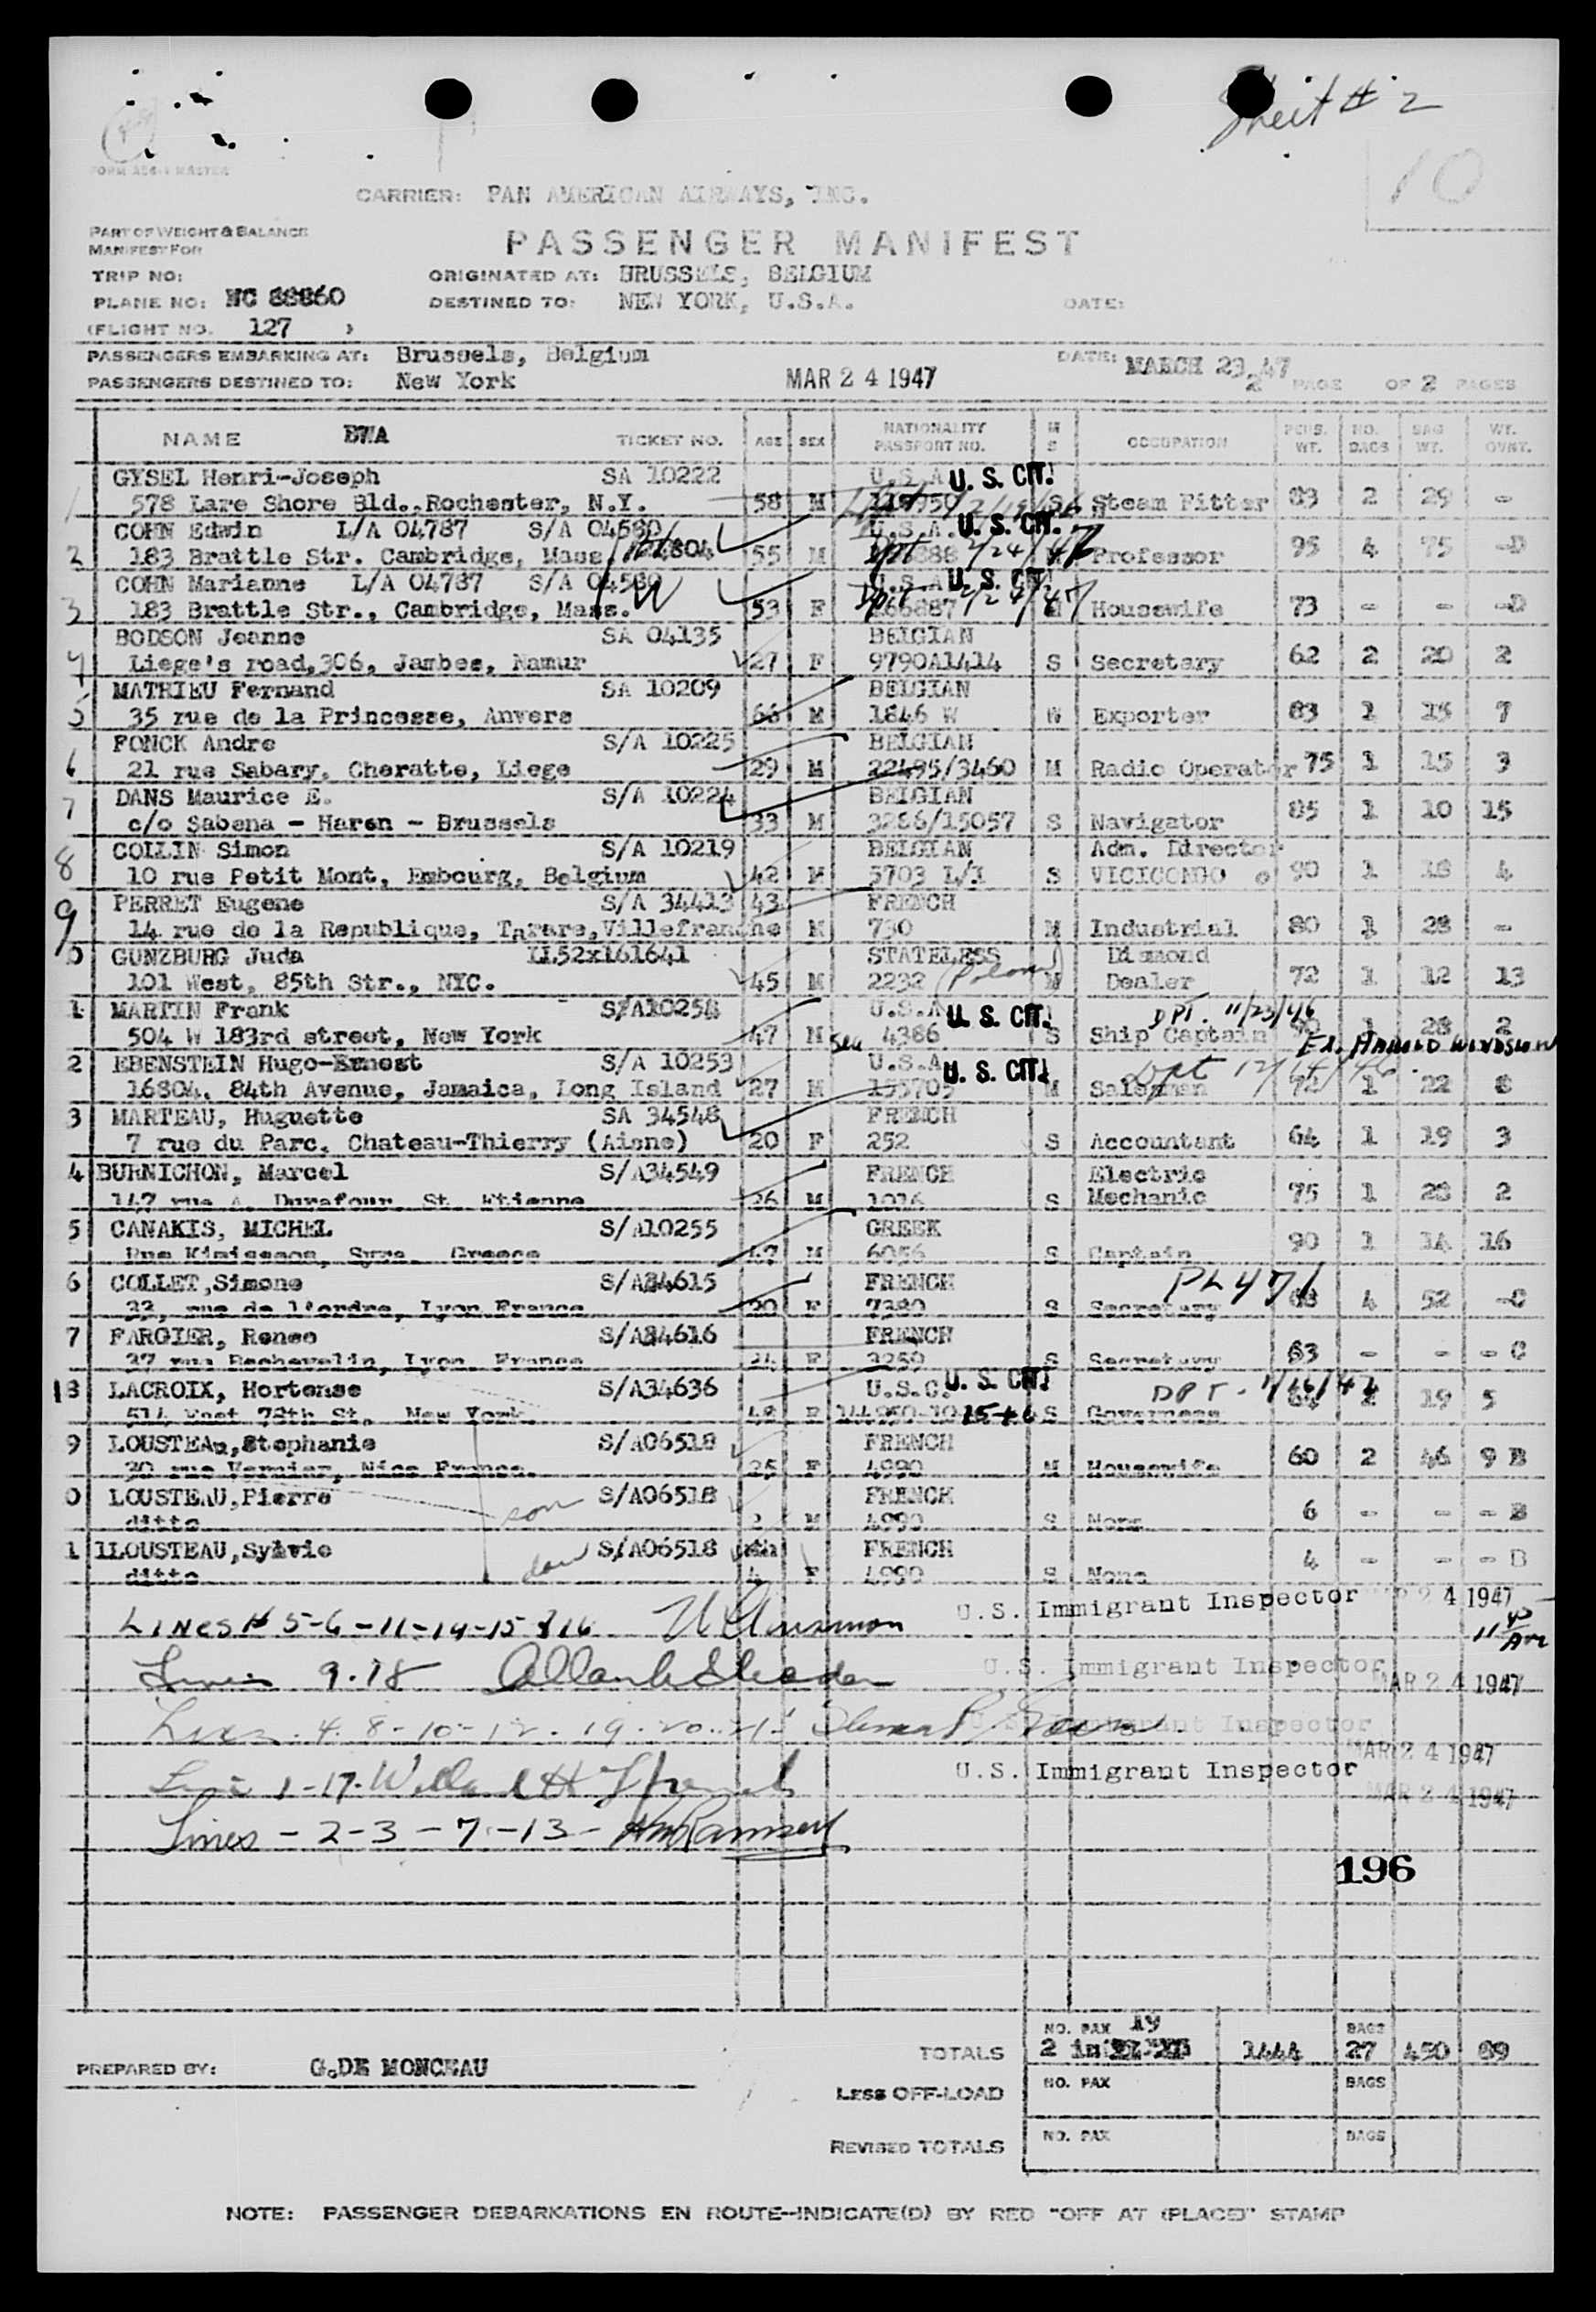 Sheet # 2
10
FORM AEG-4 MASTER
CARRIER: PAN AMERICAN AIRWAYS, INC.
PART OF WEIGHT & BALANCE
MANIFEST FOR
PASSENGER MANIFEST
TRIP NO: ORIGINATED AT: BRUSSELS, BELGIUM
PLANE NO: NC 88860 DESTINED TO: NEW YORK, U.S.A. DATE:
(FLIGHT NO. 127 )
PASSENGERS EMBARKING AT: Brussels, Belgium DATE: MARCH 23.47
PASSENGERS DESTINED TO: New York MAR 24 1947 2 PAGE OF 2 PAGES
NAME BMA TICKET NO. AGE SEX NATIONALITY PASSPORT NO. M S OCCUPATION PERS. WT. NO. BAGS BAG WT. WT. OVWT.
GYSEL Henri-Joseph SA 10222 U.S.A U. S. CIT.
1 578 Lare Shore Bld., Rochester, N.Y. 58 M S Steam Fitter 83 2 29 -
COHN Edwin L/A 04787 S/A 04580 U.S.A. U. S. CIT.
2 183 Brattle Str. Cambridge, Mass 55 M 2/24/47 M Professor 95 4 75 -D
COHN Marianne L/A 04787 S/A 04580 U.S.A U. S. CIT.
3 183 Brattle Str., Cambridge, Mass. 53 F 2/24/47 M Housewife 73 - - -D
BODSON Jeanne SA 04135 BELGIAN
4 Liege's road,306, Jambes, Namur 27 F 9790A1414 S Secretary 62 2 20 2
MATHIEU Fernand SA 10209 BELGIAN
5 35 rue de la Princesse, Anvers 66 M 1846 W W Exporter 83 1 15 7
FONCK Andre S/A 10225 BELGIAN
6 21 rue Sabary, Cheratte, Liege 29 M 22495/3460 M Radio Operator 75 1 15 3
DANS Maurice E. S/A 10224 BELGIAN
7 c/o Sabena - Haren - Brussels 33 M 3286/15057 S Navigator 85 1 10 15
COLLIN Simon S/A 10219 BELGIAN Adm. Director
8 10 rue Petit Mont, Embourg, Belgium 42 M 5703 L/I S VICICONGO 90 1 18 4
PERRET Eugene S/A 34413 43 FRENCH
9 14 rue de la Republique, Tarare, Villefranche M 730 M Industrial 80 1 28 -
0 GUNZBURG Juda LL52x161641 STATELESS Diamond
101 West, 85th Str., NYC. 45 M 2232 M Dealer 72 1 12 13
1 MARTIN Frank S/A10254 U.S.A U. S. CIT. DPT. 11/23/46
504 W 183rd street, New York 47 M Sea 4386 S Ship Captain 1 28 2
2 EBENSTEIN Hugo-Ernest S/A 10253 U.S.A U. S. CIT. Ex. HAROLD WINDSLOW
16804, 84th Avenue, Jamaica, Long Island 27 M 155705 M Salesman Dpt 12/14/46 72 1 22 8
3 MARTEAU, Huguette SA 34548 FRENCH
7 rue du Parc, Chateau-Thierry (Aisne) 20 F 252 S Accountant 64 1 19 3
4 BURNICHON, Marcel S/A34549 FRENCH Electric
147 rue A. Durafour, St Etienne 26 M 1016 S Mechanic 75 1 28 2
5 CANAKIS, MICHEL S/A10255 GREEK 90 1 14 16
Rue Kimisseos, Syra, Greece 47 M 6056 S Captain
6 COLLET, Simone S/A34615 FRENCH PL471 68 4 52 -C
33, rue de l'ordre, Lyon France 20 F 7380 S Secretary
7 FARGIER, Renee S/A34616 FRENCH 63 - - - C
37 rue Bechevelin, Lyon France 24 F 3259 S Secretary
18 LACROIX, Hortense S/A34636 U.S.C. U. S. CIT. DPT. 64 2 19 5
514 East 78th St, New York. 48 F S Governess
9 LOUSTEAU, Stephanie S/A06518 FRENCH 60 2 46 9 B
30 rue Vernier, Nice France. 25 F 4990 M Housewife
0 LOUSTEAU, Pierre son S/A06518 FRENCH 6 - - - B
ditto 2 M 4990 S None
1 LOUSTEAU, Sylvie dau S/A06518 FRENCH 4 - - - B
ditto 4 F 4990 S None
LINES # 5-6-11-14-15 & 16 U.S. Immigrant Inspector MAR 24 1947
11 45 AM
Lines 9.18 U.S. Immigrant Inspector MAR 24 1947
Lines. 4. 8-10-12. 19. 20. 21. U.S. Immigrant Inspector MAR 24 1947
Line 1-17. U.S. Immigrant Inspector MAR 24 1947
Lines - 2-3-7-13- Ramsey
196
PREPARED BY: G.DE MONCEAU
TOTALS NO. PAX 19 2 in 1444 BAGS 27 450 89
LESS OFF-LOAD NO. PAX BAGS
REVISED TOTALS NO. PAX BAGS
NOTE: PASSENGER DEBARKATIONS EN ROUTE--INDICATE(D) BY RED "OFF AT (PLACE)" STAMP